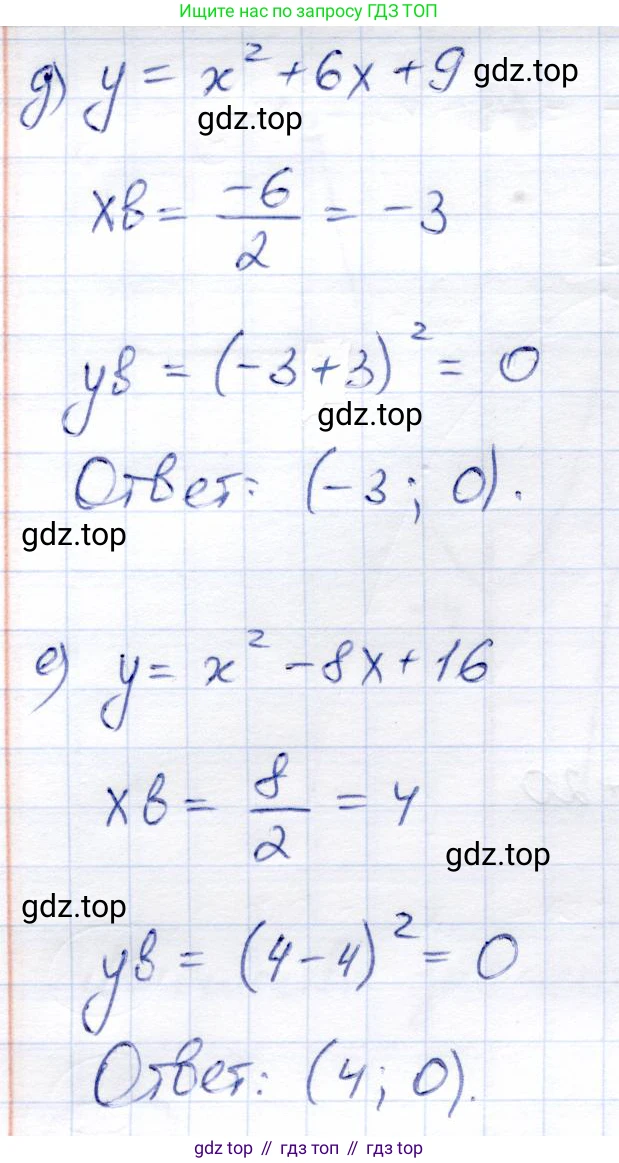 Ищите нас по запросу ГДЗ ТОП
д) y = x² + 6x + 9 gdz.top
gdz.top
xв = -6/2 = -3
yв = (-3+3)² = 0
gdz.top
Ответ: (-3; 0).
gdz.top
е) y = x² - 8x + 16
xв = 8/2 = 4
gdz.top
gdz.top
yв = (4-4)² = 0
Ответ: (4; 0).
gdz top // гдз топ // gdz.top